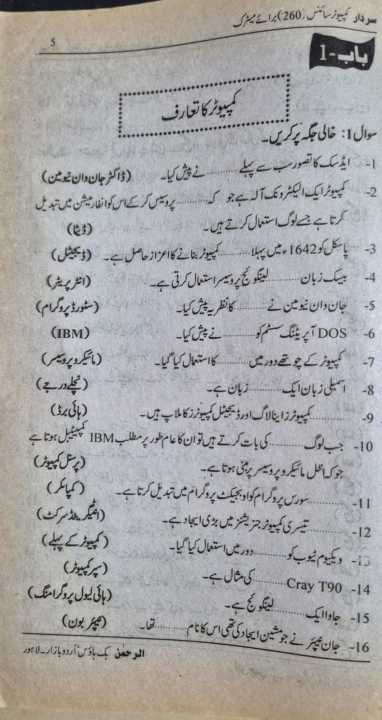 سردار کمپیوٹر سائنس (260) برائے میٹرک
5
باب-1
کمپیوٹر کا تعارف
سوال 1: خالی جگہ پر کریں۔
1- ایڈسک کا تصور سب سے پہلے ......... نے پیش کیا۔ (ڈاکٹر جان وان نیومین)
2- کمپیوٹر ایک الیکٹرونک آلہ ہے جو کہ ......... پروسیس کر کے اس کو انفارمیشن میں تبدیل
کرتا ہے جسے لوگ استعمال کرتے ہیں۔ (ڈیٹا)
3- پاسکل کو 1642ء میں پہلا ......... کمپیوٹر بنانے کا اعزاز حاصل ہے۔ (ڈیجیٹل)
4- بیسک زبان ......... لینگوئج پروسیسر استعمال کرتی ہے۔ (انٹرپریٹر)
5- جان وان نیومین نے ......... کا نظریہ پیش کیا۔ (سٹورڈ پروگرام)
6- DOS آپریٹنگ سسٹم کو ......... نے پیش کیا۔ (IBM)
7- کمپیوٹر کے چوتھے دور میں ......... کا استعمال کیا گیا۔ (مائیکرو پروسیسر)
8- اسمبلی زبان ایک ......... زبان ہے۔ (نچلے درجے)
9- ......... کمپیوٹرز اینالاگ اور ڈیجیٹل کمپیوٹرز کا ملاپ ہیں۔ (ہائی برڈ)
10- جب لوگ ......... کی بات کرتے ہیں تو ان کا عام طور پر مطلب IBM کمپیٹیبل ہوتا ہے
جو کہ انٹل مائیکرو پروسیسر پر مبنی ہوتا ہے۔ (پرسنل کمپیوٹر)
11- ......... سورس پروگرام کو اوبجیکٹ پروگرام میں تبدیل کرتا ہے۔ (کمپائلر)
12- ......... تیسری کمپیوٹر جنریشنز میں بڑی ایجاد ہے۔ (انٹیگریٹڈ سرکٹ)
13- ویکیوم ٹیوب کو ......... دور میں استعمال کیا گیا۔ (کمپیوٹر کے پہلے)
14- Cray T90 ......... کی مثال ہے۔ (سپر کمپیوٹر)
15- جاوا ایک ......... لینگوئج ہے۔ (ہائی لیول پروگرامنگ)
16- جان نیپئر نے جو مشین ایجاد کی تھی اس کا نام ......... تھا۔ (نیپئر بون)
الرحمٰن بک ہاؤس اُردو بازار۔ لاہور